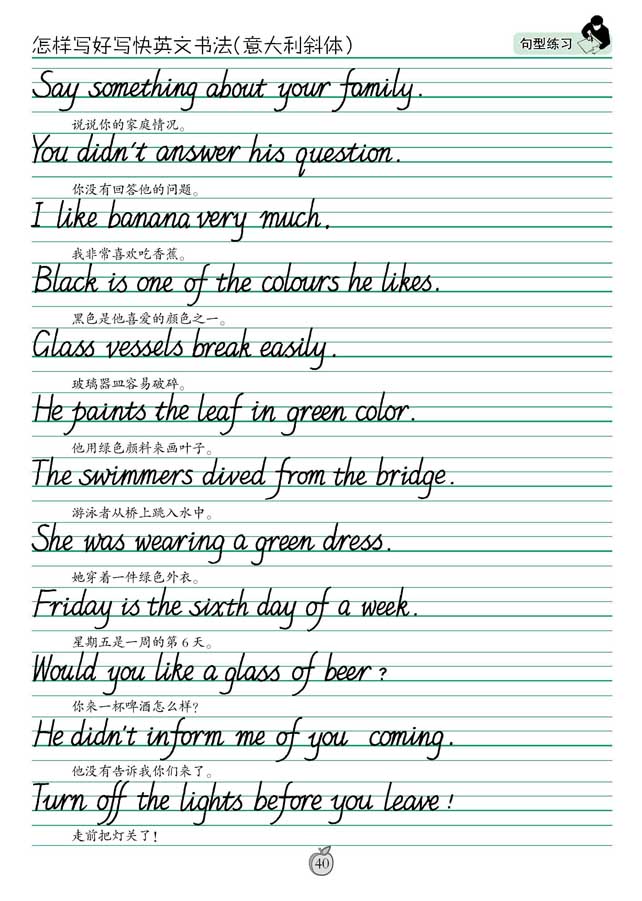 怎样写好写快英文书法(意大利斜体)
句型练习
Say something about your family.
说说你的家庭情况。
You didn't answer his question.
你没有回答他的问题。
I like banana very much.
我非常喜欢吃香蕉。
Black is one of the colours he likes.
黑色是他喜爱的颜色之一。
Glass vessels break easily.
玻璃器皿容易破碎。
He paints the leaf in green color.
他用绿色颜料来画叶子。
The swimmers dived from the bridge.
游泳者从桥上跳入水中。
She was wearing a green dress.
她穿着一件绿色外衣。
Friday is the sixth day of a week.
星期五是一周的第 6 天。
Would you like a glass of beer?
你来一杯啤酒怎么样?
He didn't inform me of you coming.
他没有告诉我你们来了。
Turn off the lights before you leave!
走前把灯关了!
40